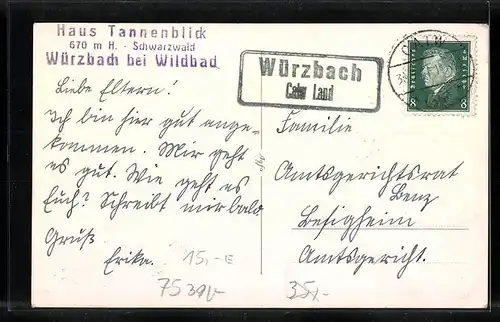 Haus Tannenblick
670 m H. - Schwarzwald
Würzbach bei Wildbad
Würzbach
Calw Land
CALW
DEUTSCHES REICH
8 8
Liebe Eltern!
Ich bin hier gut ange-
kommen. Mir geht
es gut. Wie geht es
Euch? Schreibt mir bald
Gruß
Erika.
Familie
Amtsgerichtsrat
Benz
Besigheim
Amtsgericht.
15,-E
35,-